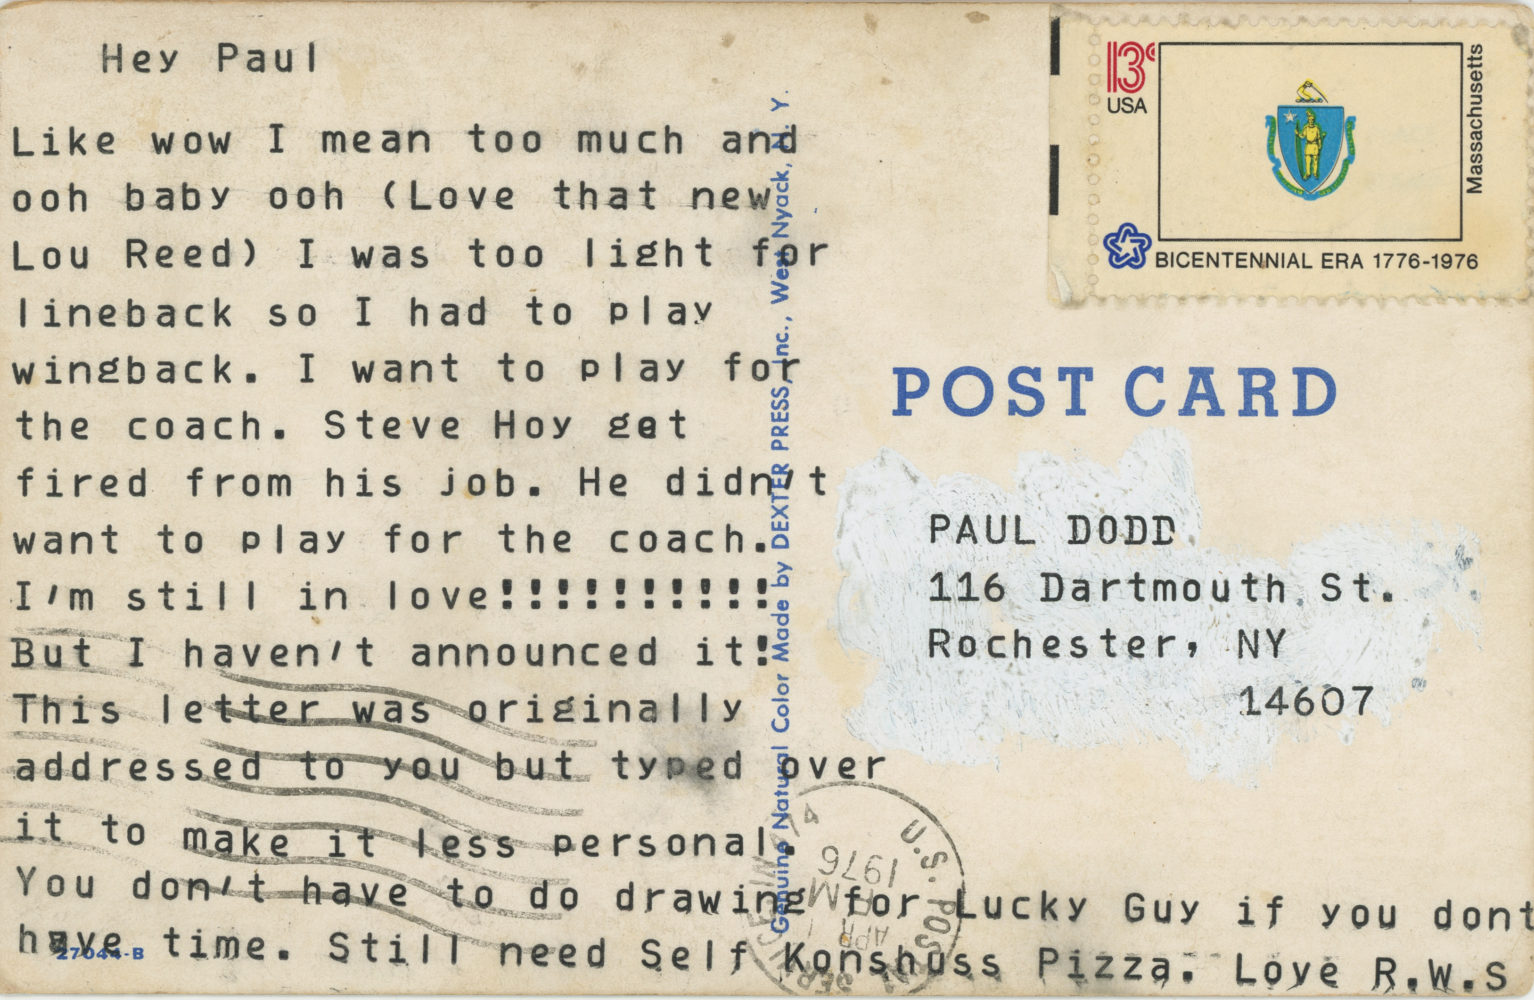 Hey Paul
Like wow I mean too much and
ooh baby ooh (Love that new
Lou Reed) I was too light for
lineback so I had to play
wingback. I want to play for
the coach. Steve Hoy get
fired from his job. He didn't
want to play for the coach.
I'm still in love!!!!!!!!!!
But I haven't announced it!
This letter was originally
addressed to you but typed over
it to make it less personal.
You don't have to do drawing for Lucky Guy if you dont
have time. Still need Self Konshuss Pizza. Love R.W.S
27044-B
Genuine Natural Color Made by DEXTER PRESS, Inc., West Nyack, N. Y.
13c
USA
Massachusetts
BICENTENNIAL ERA 1776-1976
POST CARD
PAUL DODD
116 Dartmouth St.
Rochester, NY
14607
U.S. POSTAL SERVICE
PM
APR
1976